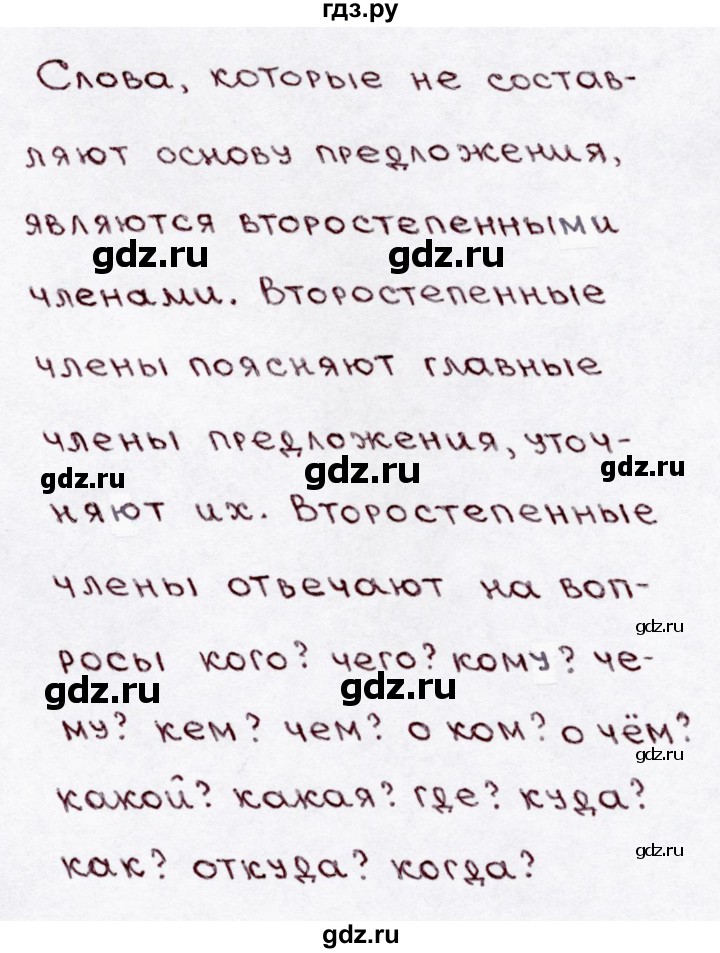 гдз.ру
Слова, которые не состав-
ляют основу предложения,
являются второстепенными
gdz.ru gdz.ru
членами. Второстепенные
члены поясняют главные
члены предложения, уточ-
gdz.ru gdz.ru gdz.ru
няют их. Второстепенные
члены отвечают на воп-
gdz.ru
росы кого? чего? кому? че-
gdz.ru gdz.ru
му? кем? чем? о ком? о чём?
gdz.ru
какой? какая? где? куда?
как? откуда? когда?
gdz.ru
gdz.ru